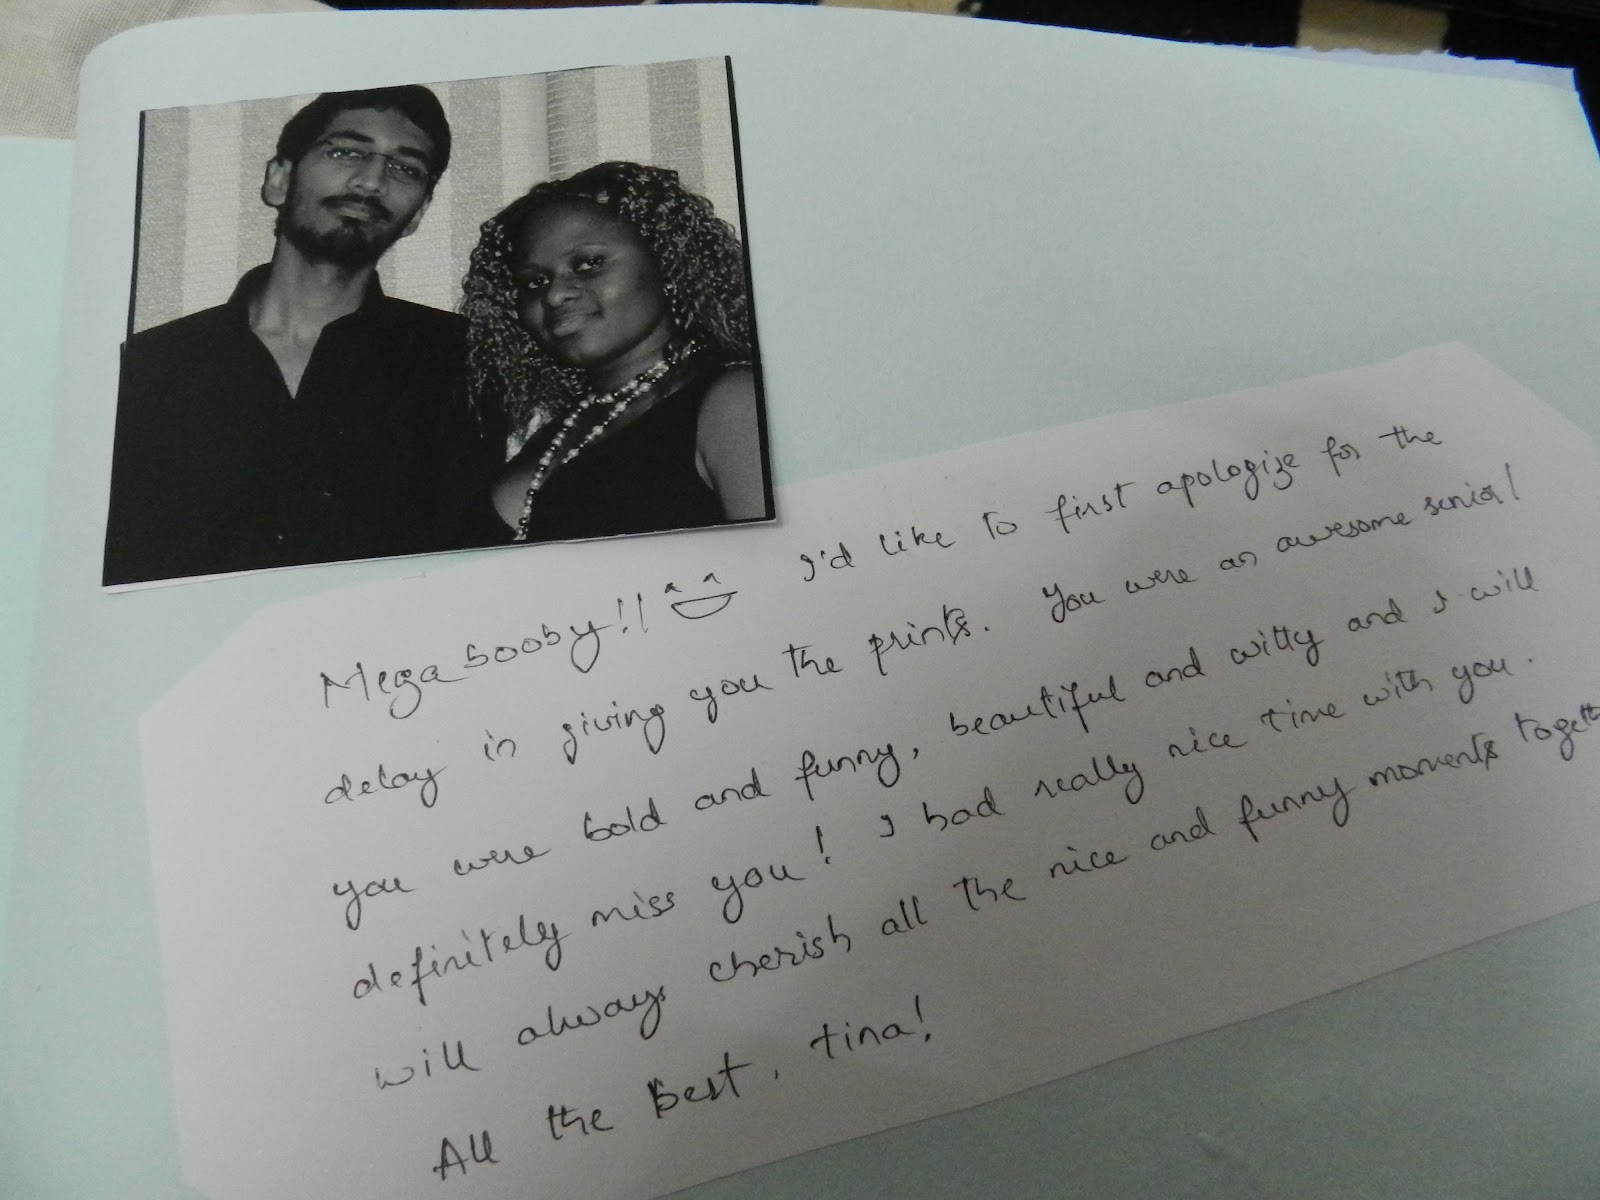 Mega booby!! I'd like to first apologize for the
delay in giving you the prints. You were an awesome senior!
you were bold and funny, beautiful and witty and I will
definitely miss you! I had really nice time with you.
will always cherish all the nice and funny moments togeth
All the best, tina!